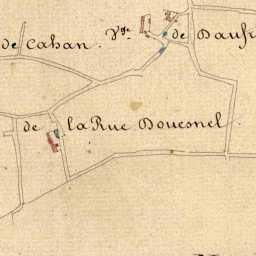 de Cahan. Vge. de Daufr
de la Rue Douesnel